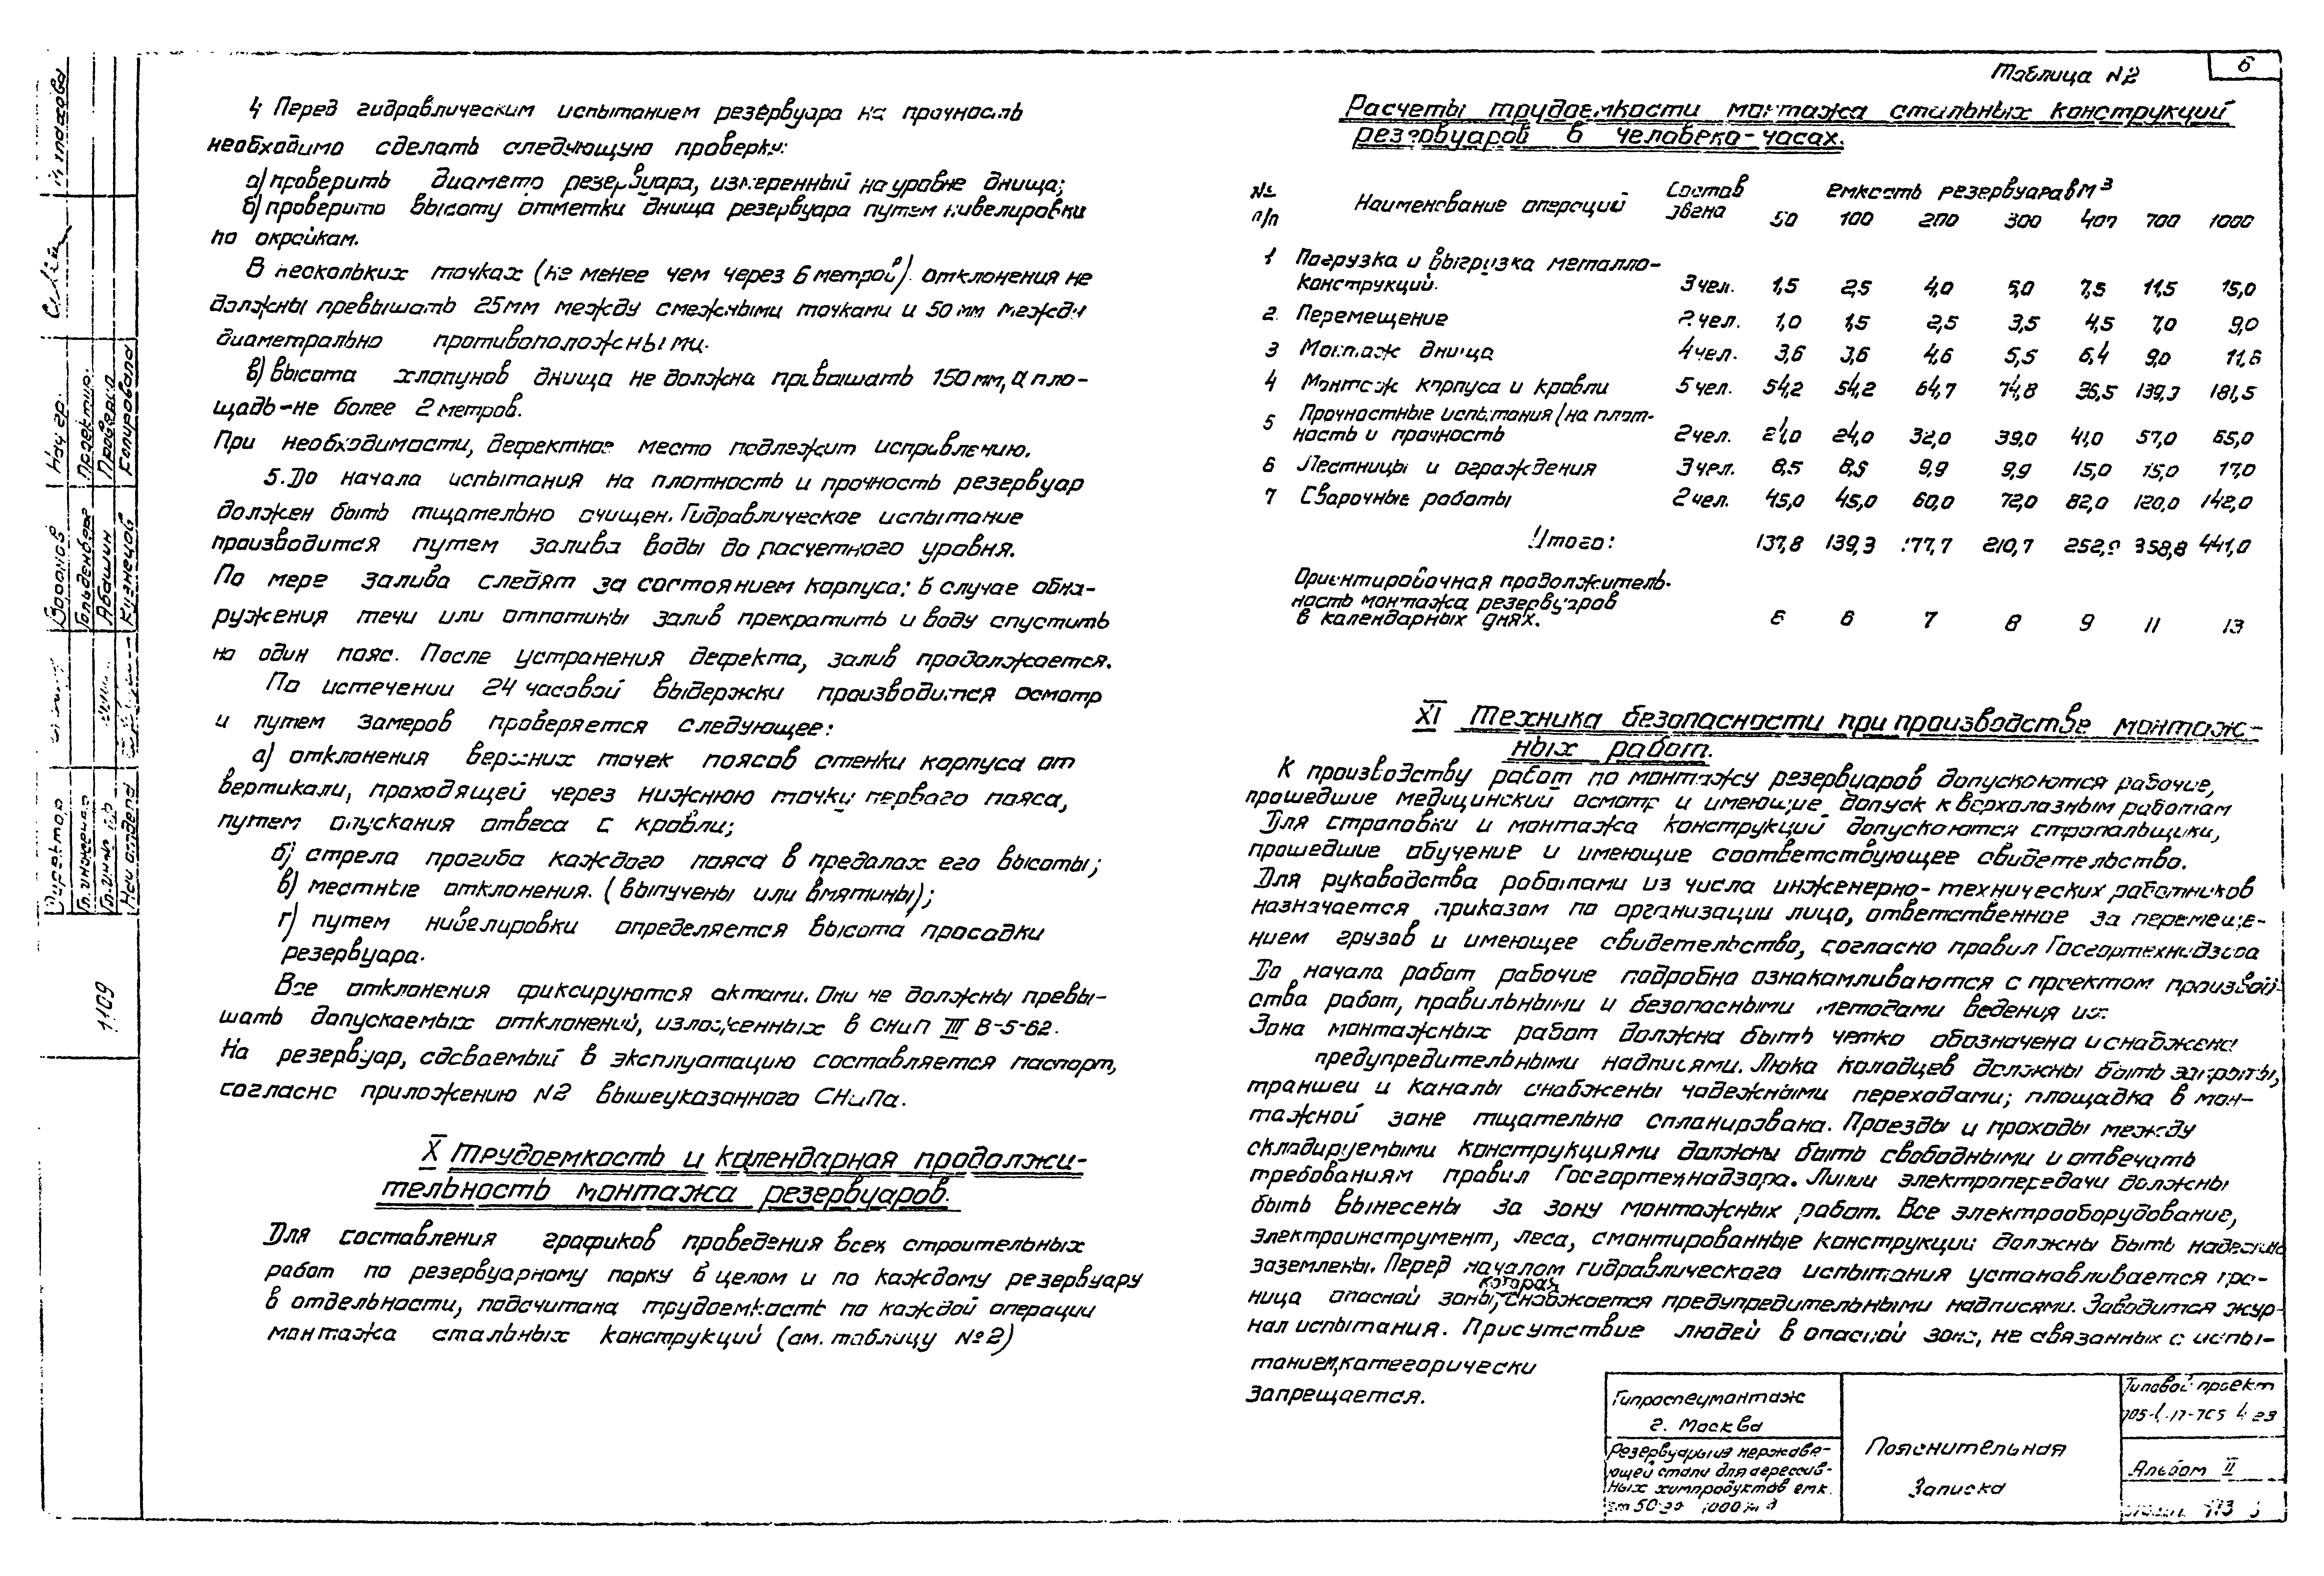 4 Перед гидравлическим испытанием резервуара на прочность
необходимо сделать следующую проверку:
а) проверить диаметр резервуара, измеренный на уровне днища;
б) проверить высоту отметки днища резервуара путем нивелировки
по окрайкам.
В нескольких точках (не менее чем через 6 метров). отклонения не
должны превышать 25мм между смежными точками и 50 мм между
диаметрально противоположными.
в) высота хлопунов днища не должна превышать 150 мм, а пло-
щадь-не более 2 метров.
При необходимости, дефектное место подлежит исправлению.
5. До начала испытания на плотность и прочность резервуар
должен быть тщательно очищен. Гидравлическое испытание
производится путем залива воды до расчетного уровня.
По мере залива следят за состоянием корпуса; в случае обна-
ружения течи или отпотины залив прекратить и воду спустить
на один пояс. После устранения дефекта, залив продолжается.
По истечении 24 часовой выдержки производится осмотр
и путем замеров проверяется следующее:
а) отклонения верхних точек поясов стенки корпуса от
вертикали, проходящей через нижнюю точку первого пояса,
путем опускания отвеса с кровли;
б) стрела прогиба каждого пояса в пределах его высоты;
в) местные отклонения. (выпучены или вмятины);
г) путем нивелировки определяется высота просадки
резервуара.
Все отклонения фиксируются актами. Они не должны превы-
шать допускаемых отклонений, изложенных в СНиП III В-5-62.
На резервуар, сдаваемый в эксплуатацию составляется паспорт,
согласно приложению N2 вышеуказанного СНиПа.
X Трудоемкость и календарная продолжи-
тельность монтажа резервуаров.
Для составления графиков проведения всех строительных
работ по резервуарному парку в целом и по каждому резервуару
в отдельности, подсчитана трудоемкость по каждой операции
монтажа стальных конструкций (см. таблицу №2)
6
Таблица N2
Расчеты трудоемкости монтажа стальных конструкций
резервуаров в человеко-часах.
№ п/п Наименование операций Состав звена Емкость резервуара в м³
50 100 200 300 400 700 1000
1 Погрузка и выгрузка металло-
конструкций. 3 чел. 1,5 2,5 4,0 6,0 7,5 11,5 15,0
2 Перемещение 2 чел. 1,0 1,5 2,5 3,5 4,5 7,0 9,0
3 Монтаж днища 4 чел. 3,6 3,6 4,6 5,5 6,4 9,0 11,6
4 Монтаж корпуса и кровли 5 чел. 54,2 54,2 64,7 74,8 96,5 139,3 181,5
5 Прочностные испытания (на плот-
ность и прочность 2 чел. 24,0 24,0 32,0 39,0 41,0 57,0 65,0
6 Лестницы и ограждения 3 чел. 8,5 8,5 9,9 9,9 15,0 15,0 17,0
7 Сварочные работы 2 чел. 45,0 45,0 60,0 72,0 82,0 120,0 142,0
Итого: 137,8 139,3 177,7 210,7 252,9 358,8 441,0
Ориентировочная продолжитель-
ность монтажа резервуаров
в календарных днях. 6 6 7 8 9 11 13
XI Техника безопасности при производстве монтаж-
ных работ.
К производству работ по монтажу резервуаров допускаются рабочие,
прошедшие медицинский осмотр и имеющие допуск к верхолазным работам
Для строповки и монтажа конструкций допускаются стропальщики,
прошедшие обучение и имеющие соответствующее свидетельство.
Для руководства работами из числа инженерно-технических работников
назначается приказом по организации лицо, ответственное за перемеще-
нием грузов и имеющее свидетельство, согласно правил Госгортехнадзора
До начала работ рабочие подробно ознакамливаются с проектом производ-
ства работ, правильными и безопасными методами ведения их.
Зона монтажных работ должна быть четко обозначена и снабжена
предупредительными надписями. Люка колодцев должны быть закрыты,
траншеи и каналы снабжены надежными переходами; площадка в мон-
тажной зоне тщательно спланирована. Проезды и проходы между
складируемыми конструкциями должны быть свободными и отвечать
требованиям правил Госгортехнадзора. Линии электропередачи должны
быть вынесены за зону монтажных работ. Все электрооборудование,
электроинструмент, леса, смонтированные конструкции должны быть надежно
заземлены. Перед началом гидравлического испытания устанавливается гра-
ница опасной зоны, которая снабжается предупредительными надписями. Заводится жур-
нал испытания. Присутствие людей в опасной зоне, не связанных с испы-
танием, категорически
запрещается.
Гипроспецмонтаж
г. Москва
Резервуары из нержаве-
ющей стали для агрессив-
ных химпродуктов емк.
от 50 до 1000 м3
Пояснительная
Записка
Типовой проект
Альбом II
Директор
Гл. инженер
Нач отдела
Воронов
Гольденберг
Абашин
Кузнецов
Нач гр.
Проектир.
Проверил
Копировала
1109